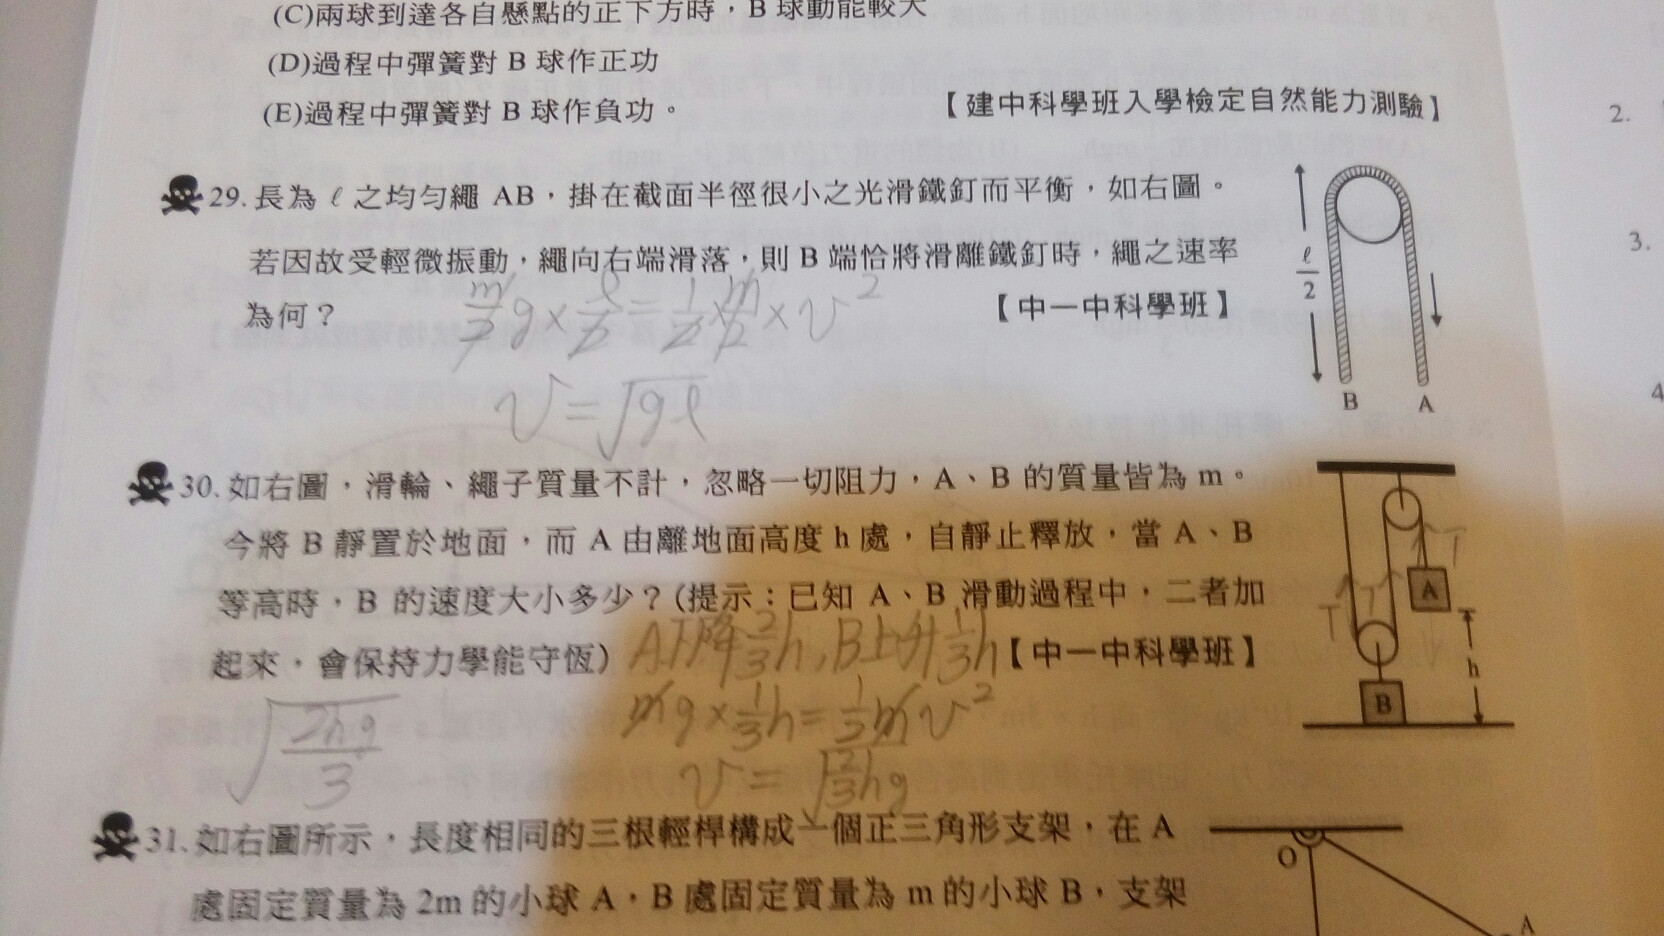 (C)兩球到達各自懸點的正下方時，B 球動能較大
(D)過程中彈簧對 B 球作正功
(E)過程中彈簧對 B 球作負功。 【建中科學班入學檢定自然能力測驗】
29. 長為 ℓ 之均勻繩 AB，掛在截面半徑很小之光滑鐵釘而平衡，如右圖。
若因故受輕微振動，繩向右端滑落，則 B 端恰將滑離鐵釘時，繩之速率
為何？ 【中一中科學班】
m/2 g × ℓ/2 = 1/2 × m/2 × v²
v = √gℓ
ℓ/2
B A
30. 如右圖，滑輪、繩子質量不計，忽略一切阻力，A、B 的質量皆為 m。
今將 B 靜置於地面，而 A 由離地面高度 h 處，自靜止釋放，當 A、B
等高時，B 的速度大小多少？(提示：已知 A、B 滑動過程中，二者加
起來，會保持力學能守恆) 【中一中科學班】
A下降2/3h,B上升1/3h
mg×1/3h=1/2mv²
v=√2/3hg
√2hg/3
T T T
A
h
B
31. 如右圖所示，長度相同的三根輕桿構成一個正三角形支架，在 A
處固定質量為 2m 的小球 A，B 處固定質量為 m 的小球 B，支架
O
A
2.
3.
4